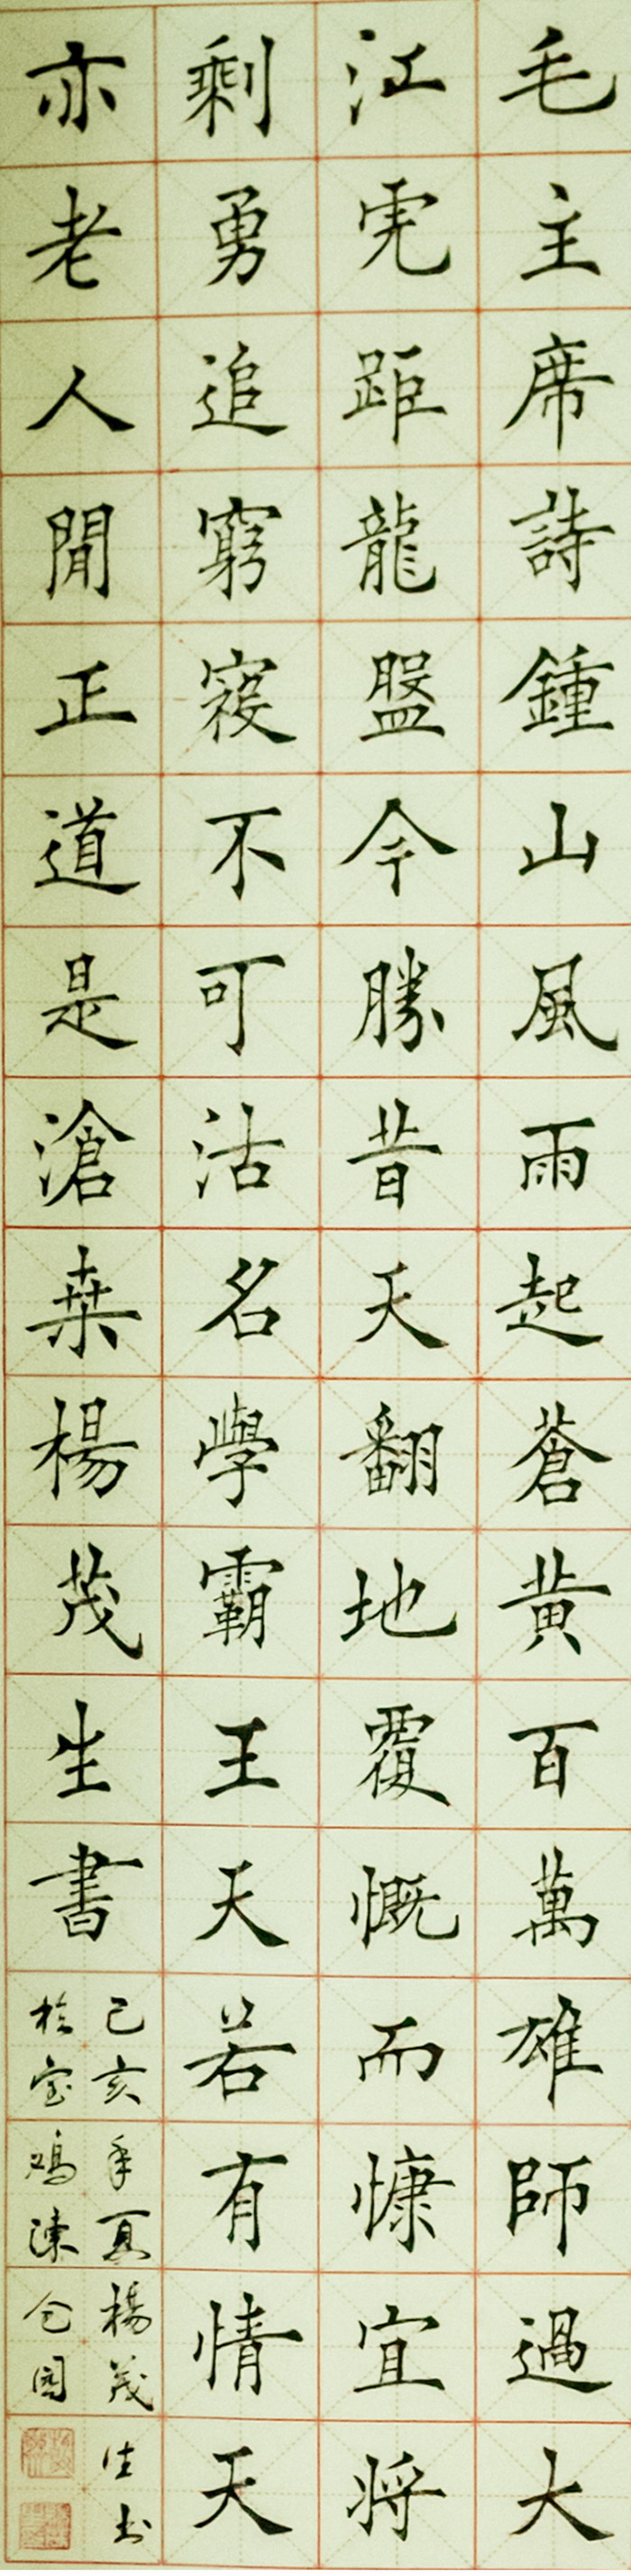 毛主席詩鍾山風雨起蒼黄百萬雄師過大
江虎距龍盤今勝昔天翻地覆慨而慷宜将
剩勇追窮寇不可沽名學霸王天若有情天
亦老人閒正道是滄桒楊茂生書
己亥年夏楊茂生书
於宝鸡陳仓园